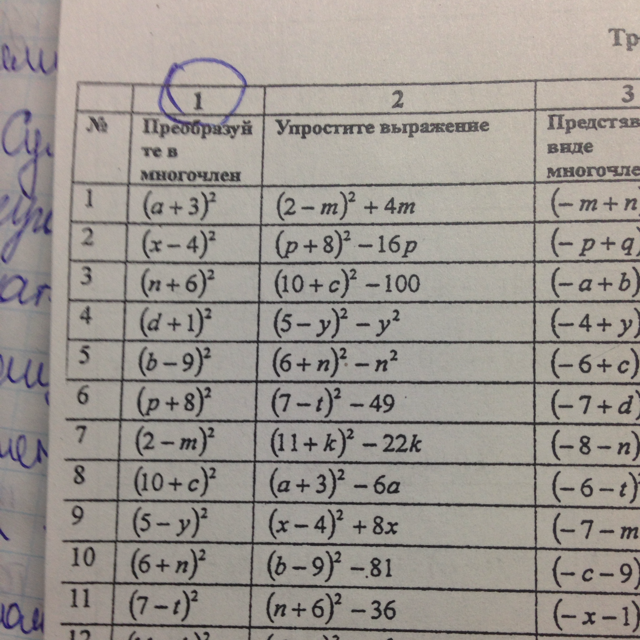 Тр
1 2 3
№ Преобразуй Упростите выражение Представ
те в виде
многочлен многочле
1 (a + 3)² (2 − m)² + 4m (− m + n
2 (x − 4)² (p + 8)² − 16p (− p + q)
3 (n + 6)² (10 + c)² − 100 (− a + b)
4 (d + 1)² (5 − y)² − y² (− 4 + y)
5 (b − 9)² (6 + n)² − n² (− 6 + c)
6 (p + 8)² (7 − t)² − 49 (− 7 + d)
7 (2 − m)² (11 + k)² − 22k (− 8 − n)
8 (10 + c)² (a + 3)² − 6a (− 6 − t)
9 (5 − y)² (x − 4)² + 8x (− 7 − m
10 (6 + n)² (b − 9)² − 81 (− c − 9)
11 (7 − t)² (n + 6)² − 36 (− x − 1)
12